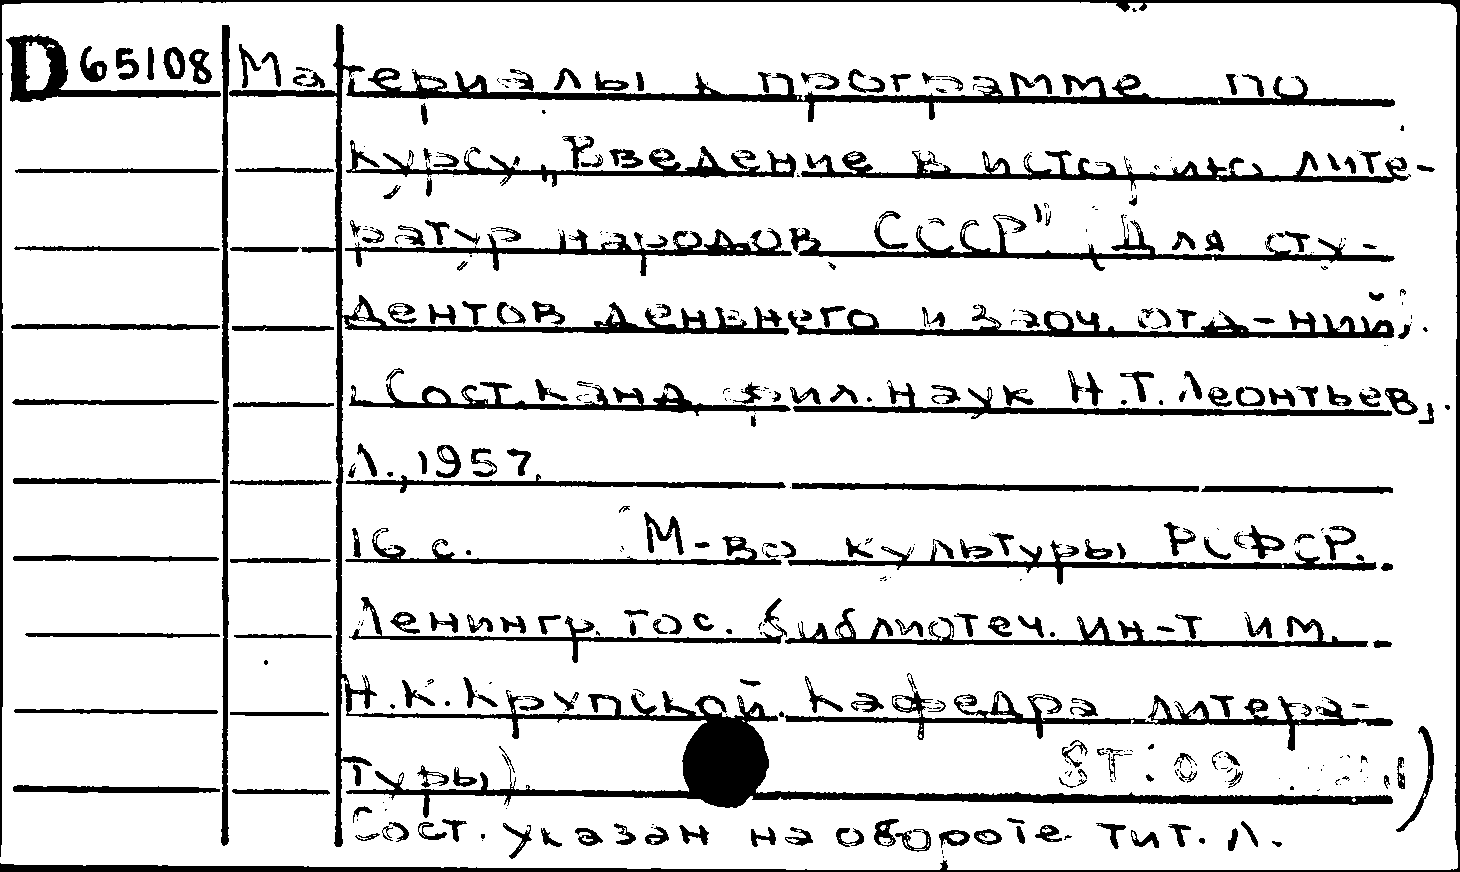 D 65108 Материалы к программе по
курсу „Введение в историю лите-
ратур народов СССР" [Для сту-
дентов деньнего и заоч. отд-ний].
[Сост. канд. фил. наук Н.Т. Леонтьев].
Л., 1957.
16 с. (М-во культуры РСФСР.
Ленингр. гос. библиотеч. ин-т им.
Н.К. Крупской. Кафедра литера-
туры).
ST: 09
Сост. указан на обороте тит. л.